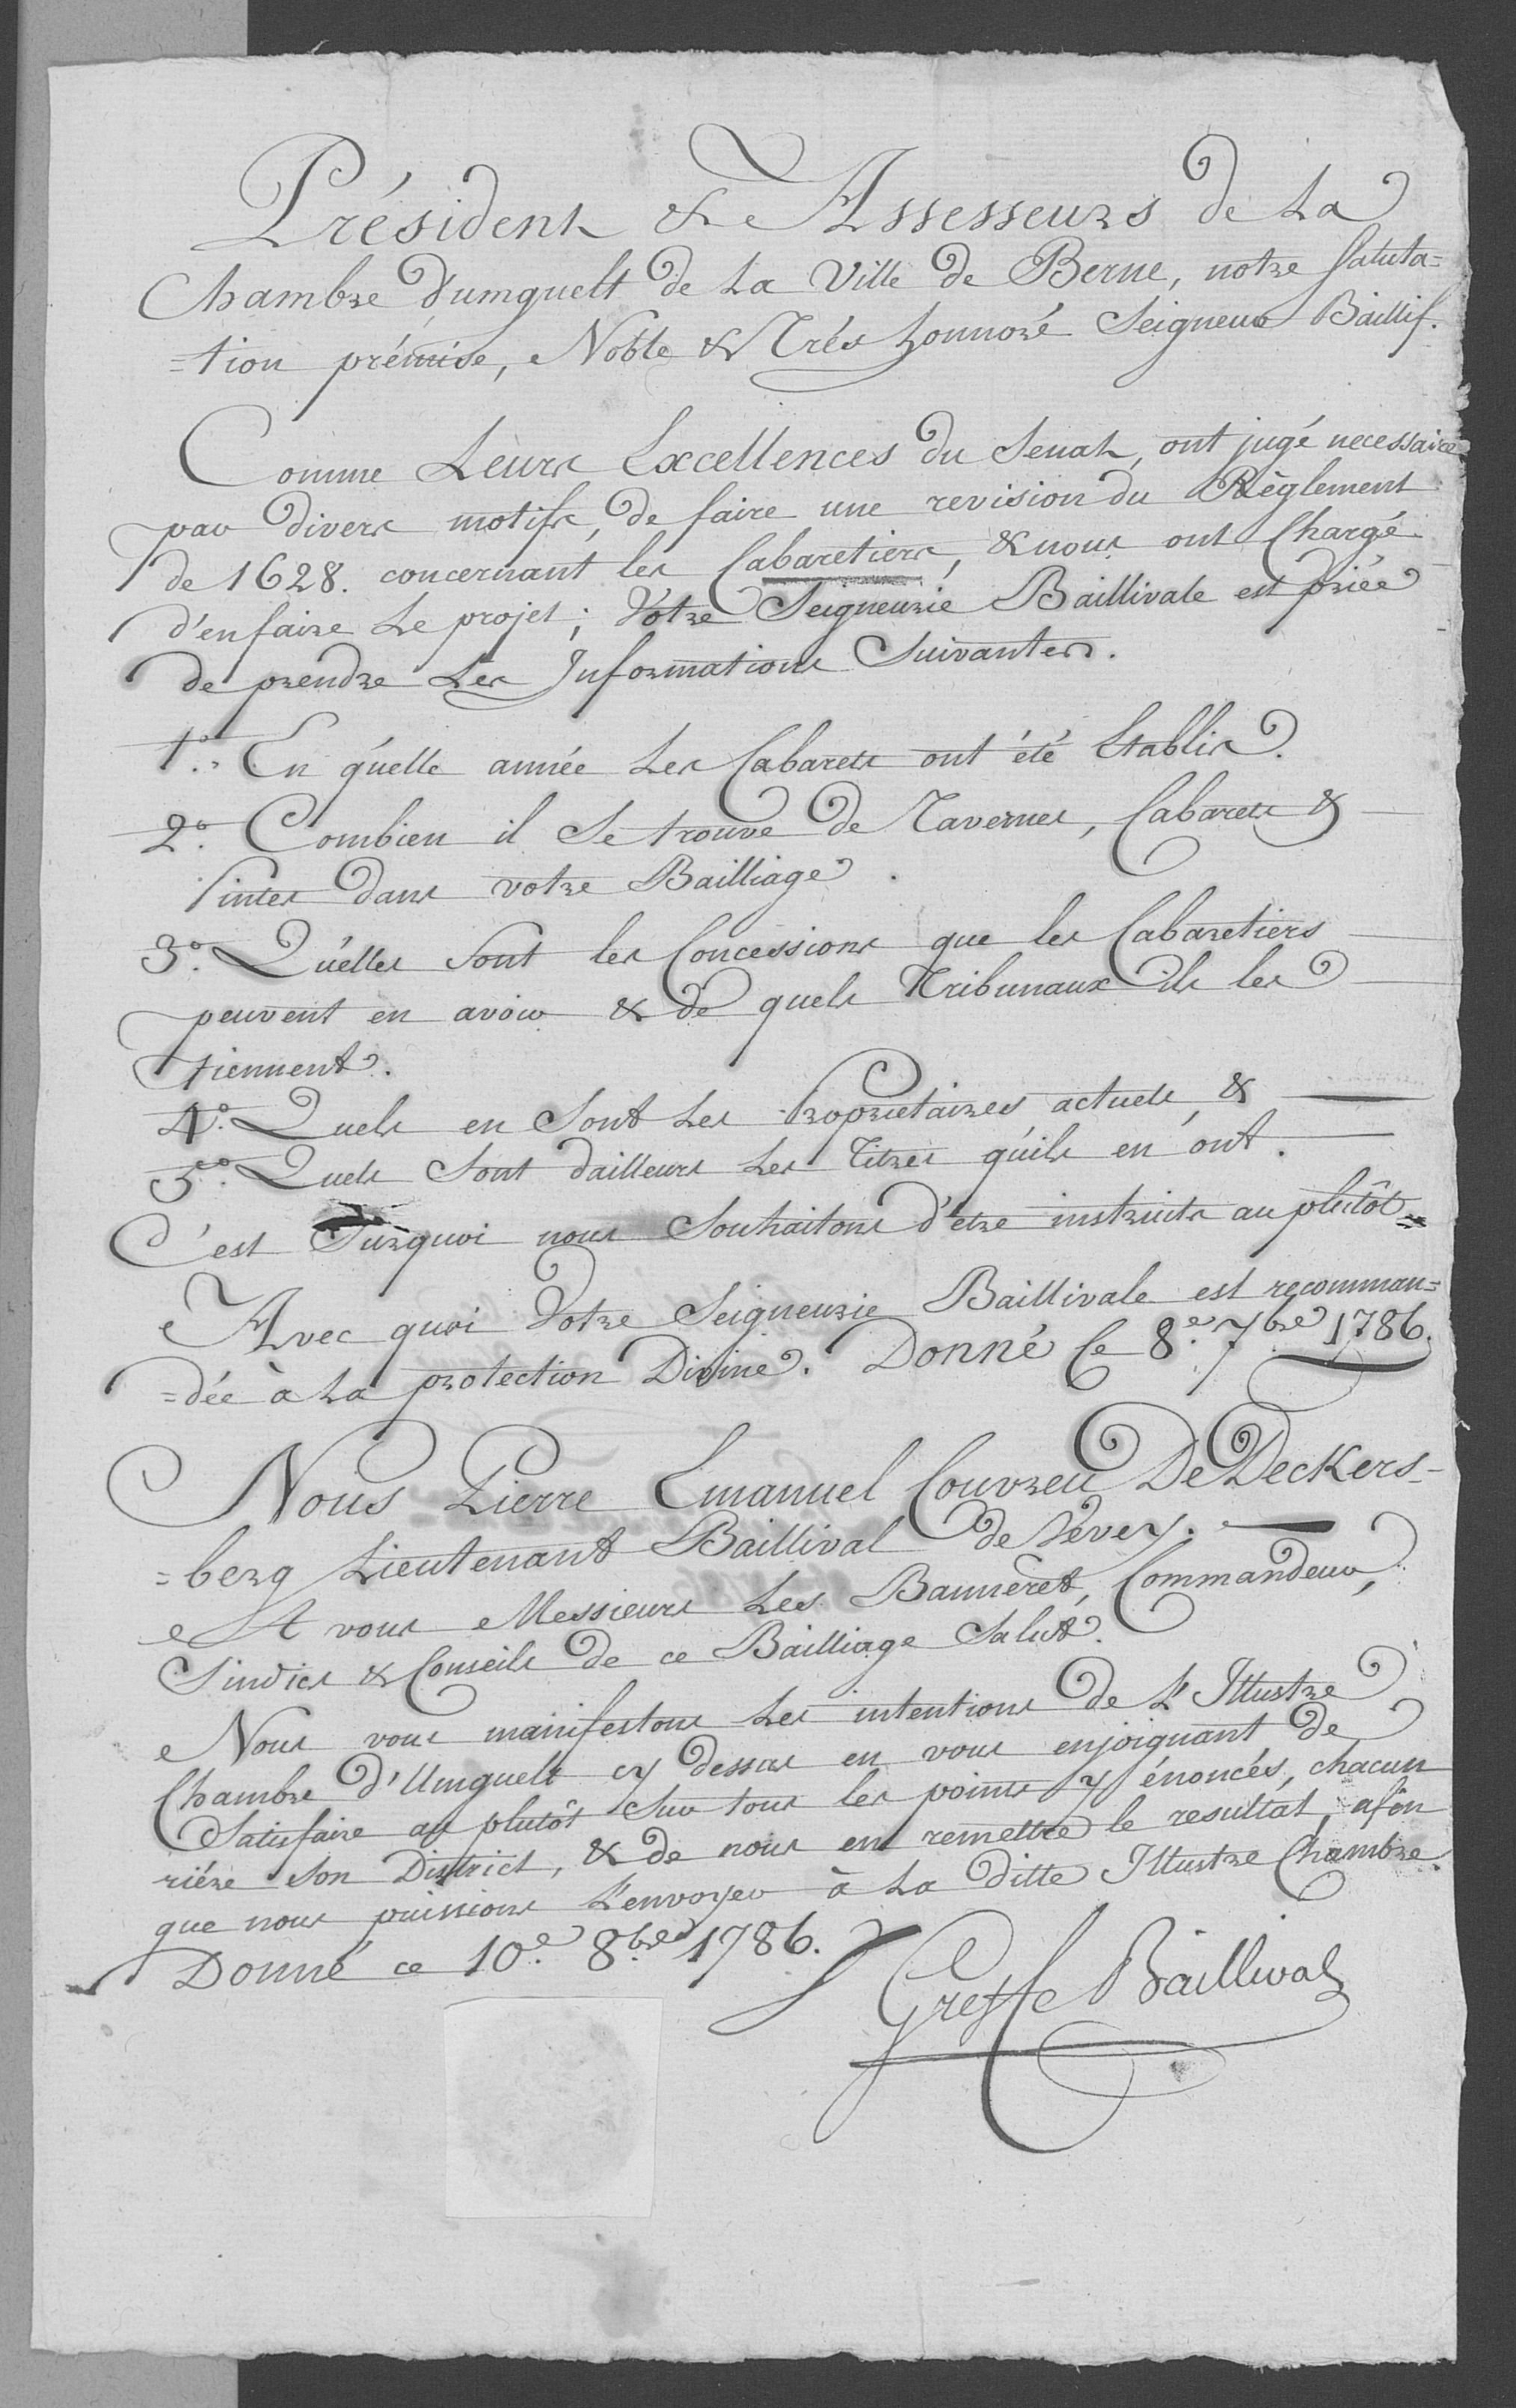 Président & Assesseurs de La
Chambre d'umguelt de La Ville de Berne, notre Saluta=
=tion prémise, Noble & Trés honnoré Seigneur Baillif.
Comme Leurs Excellences du Senat, ont jugé necessaire
par divers motifs, de faire une revision du Règlement
de 1628. concernant les Cabaretiers, & nous ont Chargé
d'en faire Le projet; Votre Seigneurie Baillivale est priée
de prendre Les Informations Suivantes.
1.° En q'uelle année Les Cabarets ont été Etablis.
2.° Combien il Se trouve de Tavernes, Cabarets &
Pintes dans votre Bailliage.
3.° Qu'elles Sont les Concessions que les Cabaretiers
peuvent en avoir & de quels Tribunaux ils les
tiennent.
4.° Quels en Sont Les Proprietaires actuels, &
5.° Quels Sont d'ailleurs Les Titres qu'ils en ont.
C'est Surquoi nous Souhaitons d'etre instruits au plutôt
Avec quoi Votre Seigneurie Baillivale est recomman=
=dée à La protection Divine. Donné Ce 8.e 7.bre 1786.
Nous Pierre Emanuel Couvreu De Deckers-
=berg Lieutenant Baillival de Vevey.
A vous Messieurs Les Banneret, Commandeur,
Sindics & Conseils de ce Bailliage Salut.
Nous vous manifestons Les intentions de L'Illustre
Chambre d'Umguelt cy dessus en vous enjoignant de
Satisfaire au plutôt Sur tous les points y énoncés, chacun
riére Son District, & de nous en remettre le resultat, afin
que nous puissions L'envoyer à La ditte Illustre Chambre.
Donné ce 10.e 8.bre 1786.
Greffe Baillival